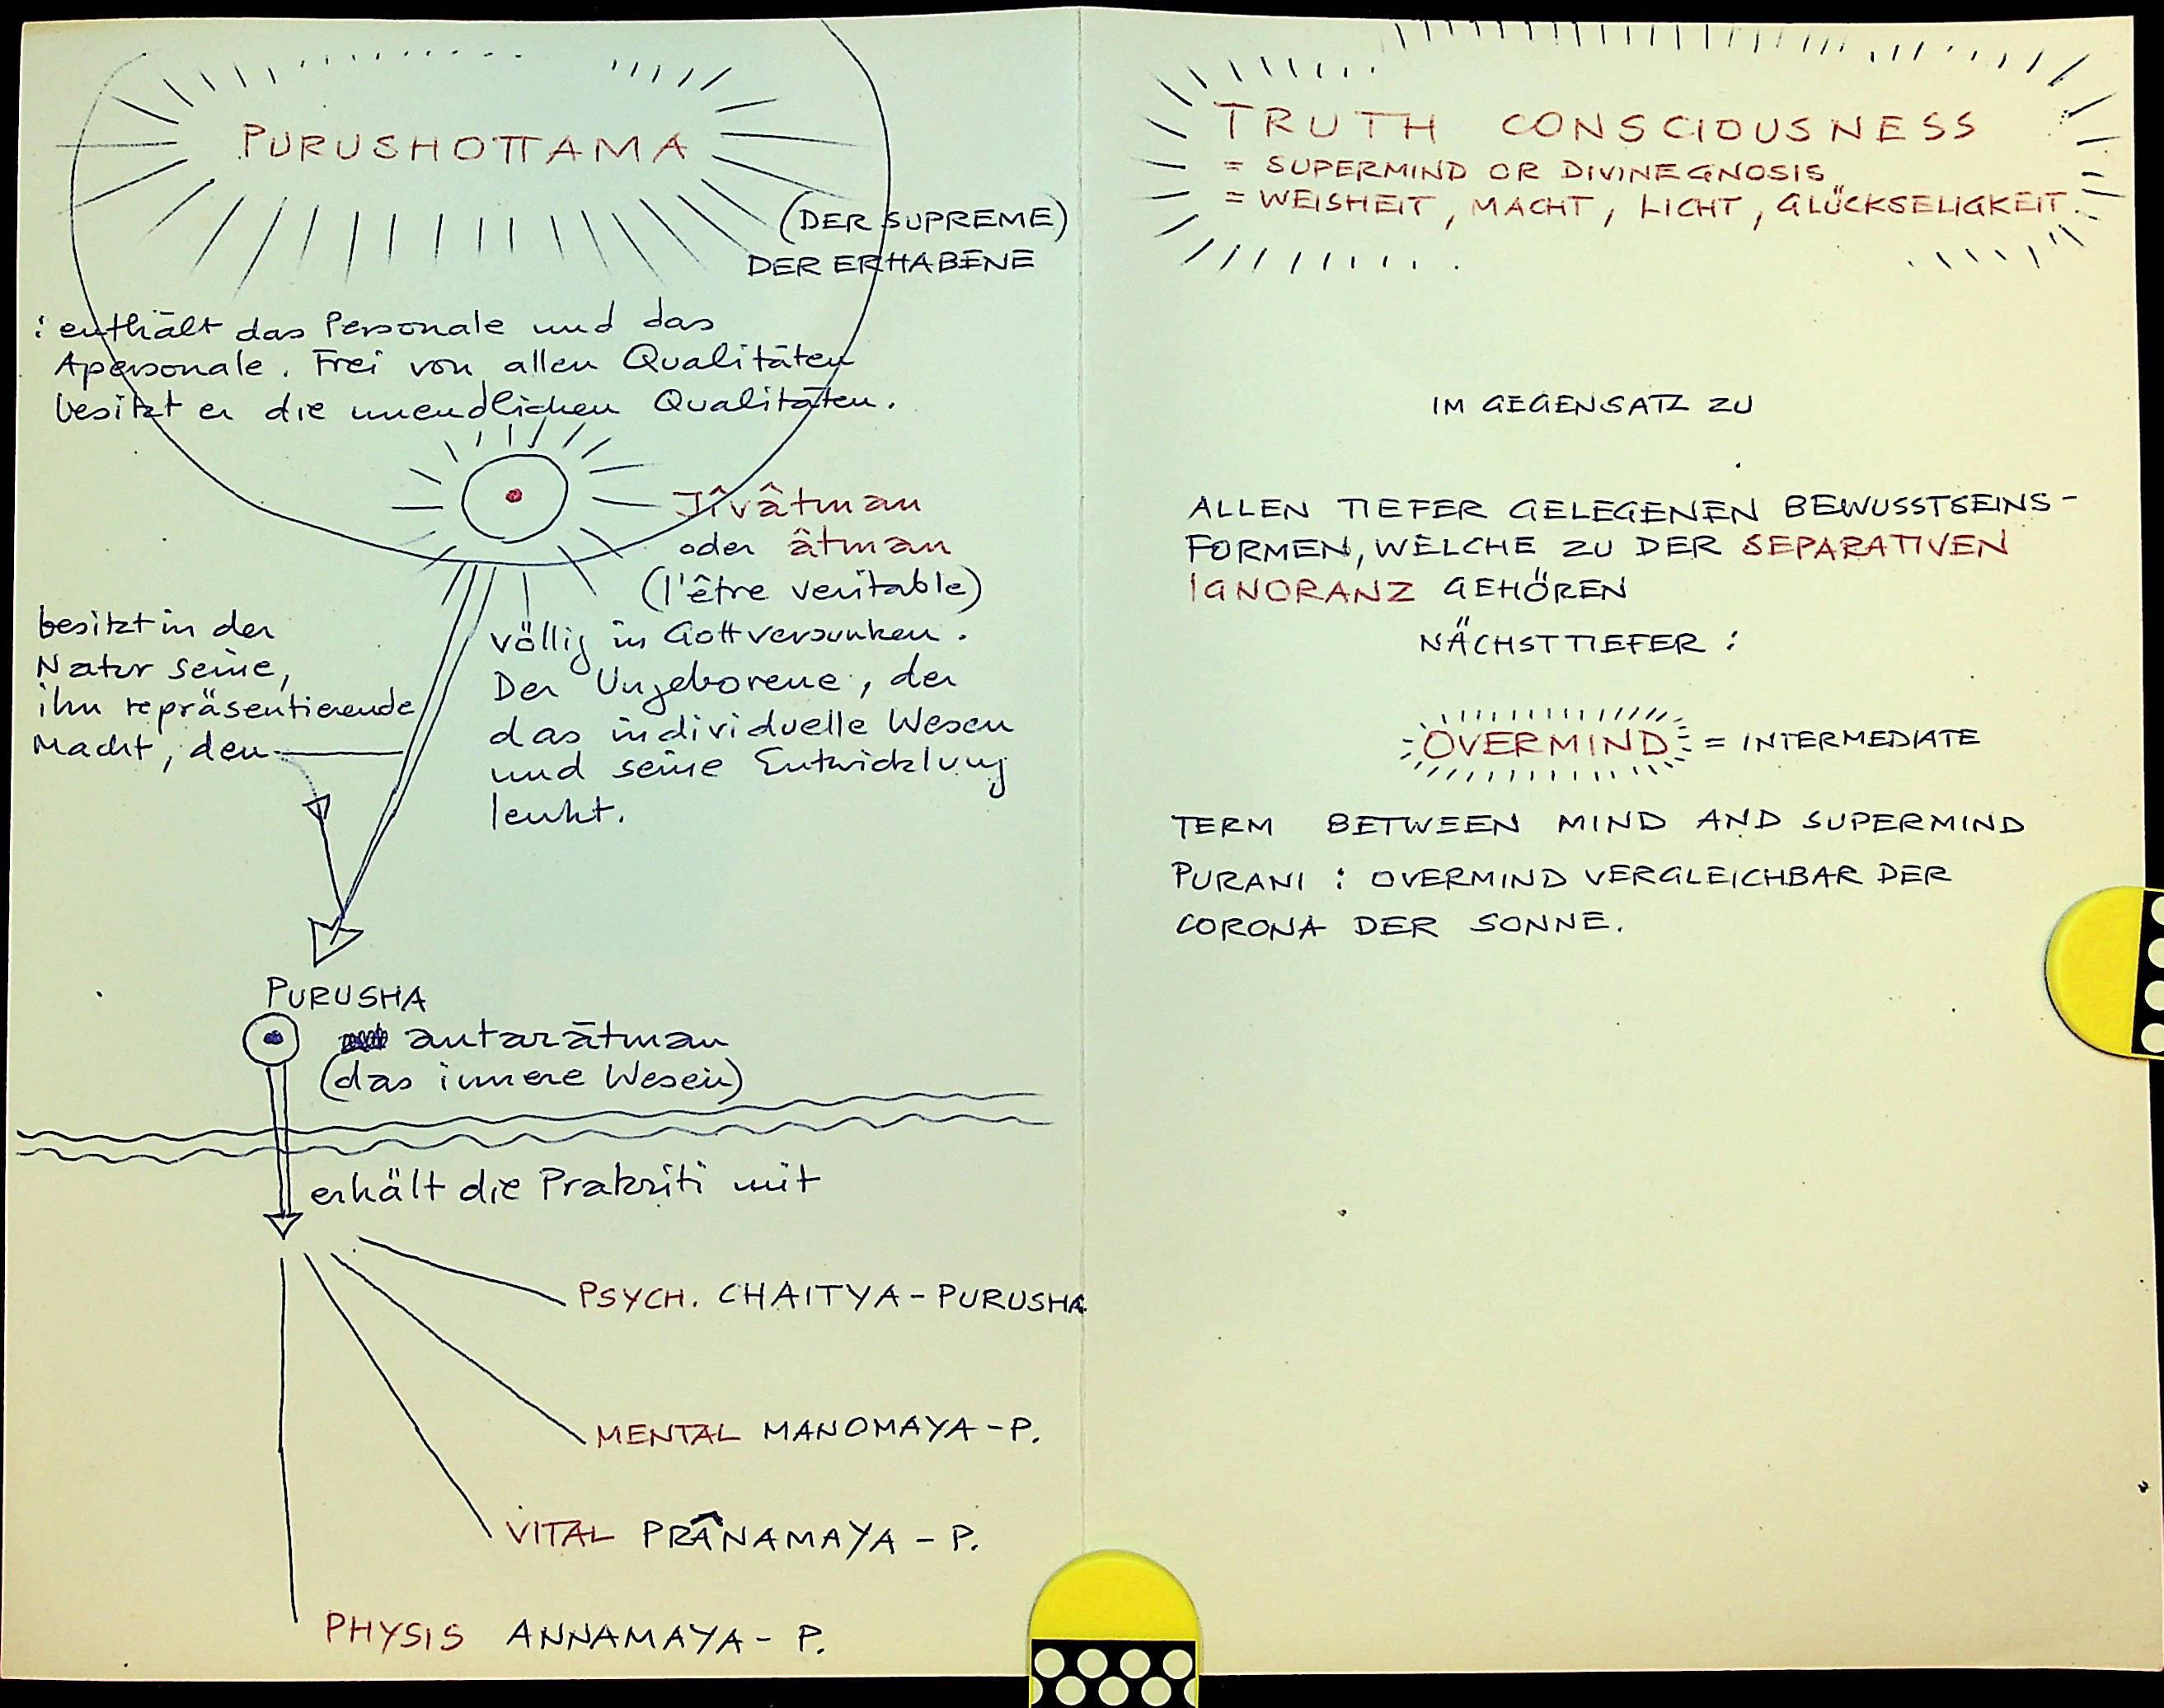 PURUSHOTTAMA
(DER SUPREME)
DER ERHABENE
: enthält das Personale und das
Apersonale. Frei von allen Qualitäten
besitzt er die unendlichen Qualitäten.
Jîvâtman
oder âtman
(l'être veritable)
völlig in Gott versunken.
Der Ungeborene, der
das individuelle Wesen
und seine Entwicklung
lenkt.
besitzt in der
Natur seine,
ihn repräsentierende
Macht, den
PURUSHA
antarātman
(das innere Wesen)
erhält die Prakriti mit
PSYCH. CHAITYA-PURUSHA
MENTAL MANOMAYA-P.
VITAL PRÂNAMAYA-P.
PHYSIS ANNAMAYA-P.
TRUTH CONSCIOUSNESS
= SUPERMIND OR DIVINE GNOSIS
= WEISHEIT, MACHT, LICHT, GLÜCKSELIGKEIT.
IM GEGENSATZ ZU
ALLEN TIEFER GELEGENEN BEWUSSTSEINS-
FORMEN, WELCHE ZU DER SEPARATIVEN
IGNORANZ GEHÖREN
NÄCHSTTIEFER :
OVERMIND = INTERMEDIATE
TERM BETWEEN MIND AND SUPERMIND
PURANI : OVERMIND VERGLEICHBAR DER
CORONA DER SONNE.